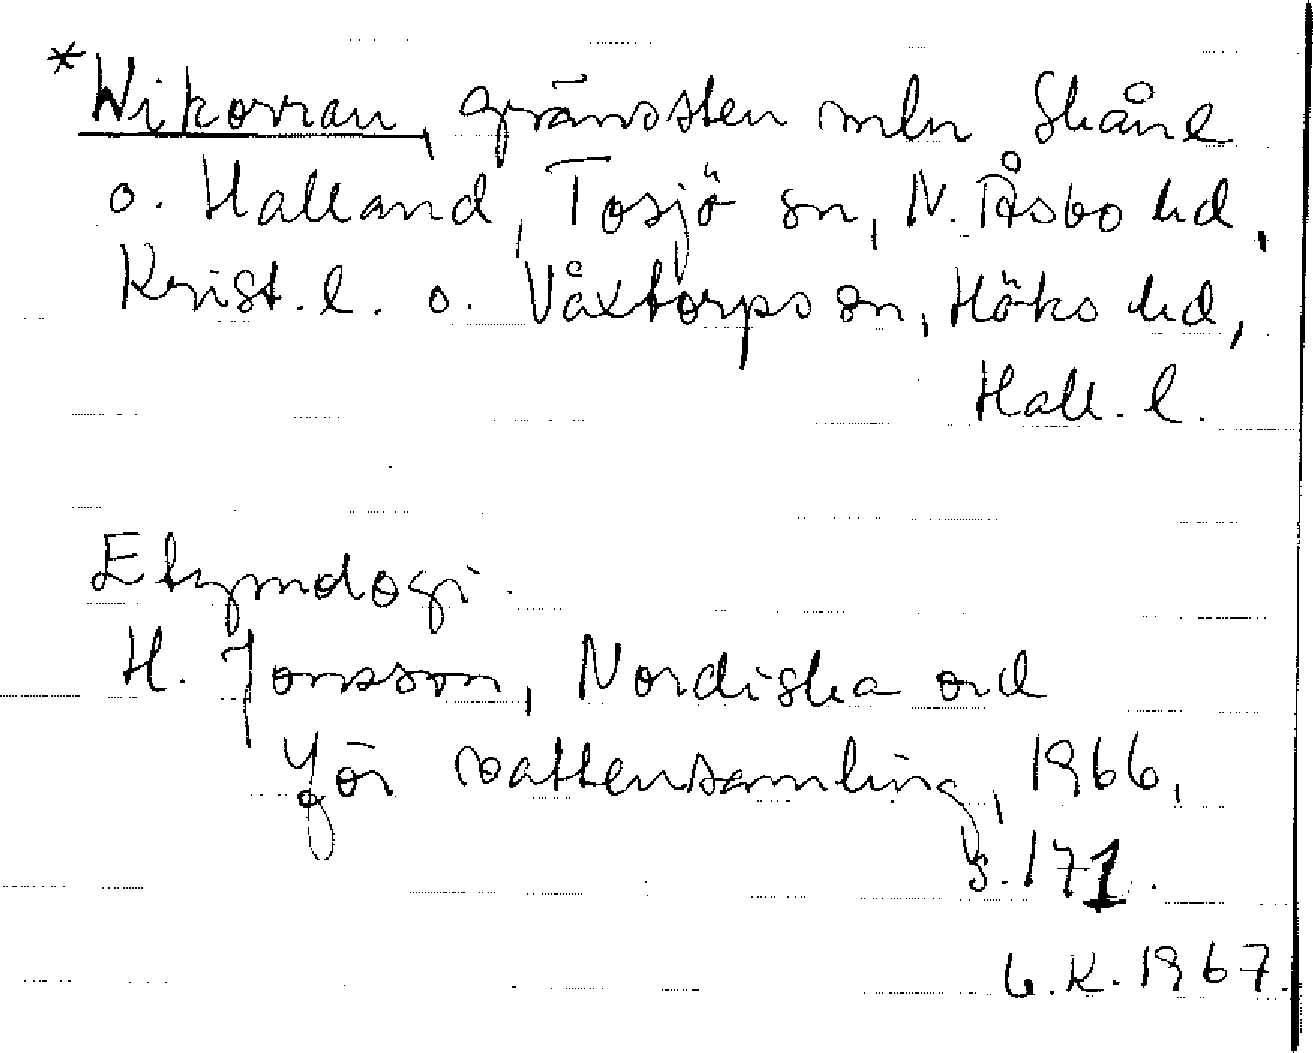 *Wikorran, gränssten mln Skåne
o. Halland, Tosjö sn, N. Åsbo hd,
Krist. l. o. Våxtorps sn, Höks hd,
Hall. l.
Etymologi.
H. Jonsson, Nordiska ord
för vattensamling, 1966,
s. 171.
K. 1967.